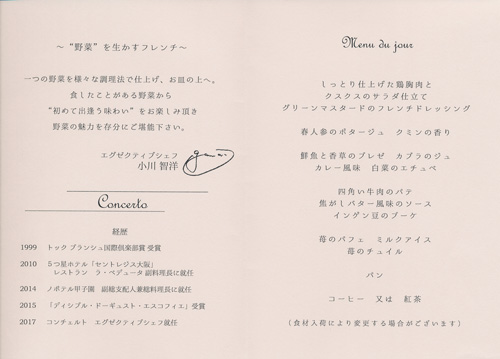 ～ “野菜” を生かすフレンチ～
一つの野菜を様々な調理法で仕上げ、お皿の上へ。
食したことがある野菜から
“初めて出逢う味わい” をお楽しみ頂き
野菜の魅力を存分にご堪能下さい。
エグゼクティブシェフ
小川 智洋
Concerto
経歴
1999 トック ブランシュ国際倶楽部賞 受賞
2010 5つ星ホテル「セントレジス大阪」
レストラン ラ・ベデュータ 副料理長に就任
2014 ノボテル甲子園 副総支配人兼総料理長に就任
2015 「ディシプル・ドーギュスト・エスコフィエ」受賞
2017 コンチェルト エグゼクティブシェフ就任
Menu du jour
しっとり仕上げた鶏胸肉と
クスクスのサラダ仕立て
グリーンマスタードのフレンチドレッシング
春人参のポタージュ クミンの香り
鮮魚と香草のブレゼ カブラのジュ
カレー風味 白菜のエチュベ
四角い牛肉のパテ
焦がしバター風味のソース
インゲン豆のブーケ
苺のパフェ ミルクアイス
苺のチュイル
パン
コーヒー 又は 紅茶
(食材入荷により変更する場合がございます)